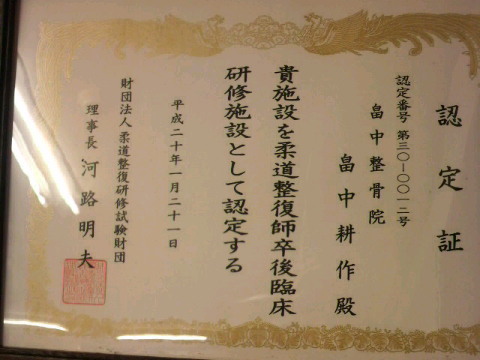 認定証
認定番号 第三〇-〇〇一二号
畠中整骨院
畠中耕作殿
貴施設を柔道整復師卒後臨床
研修施設として認定する
平成二十年一月二十一日
財団法人柔道整復研修試験財団
理事長 河路明夫